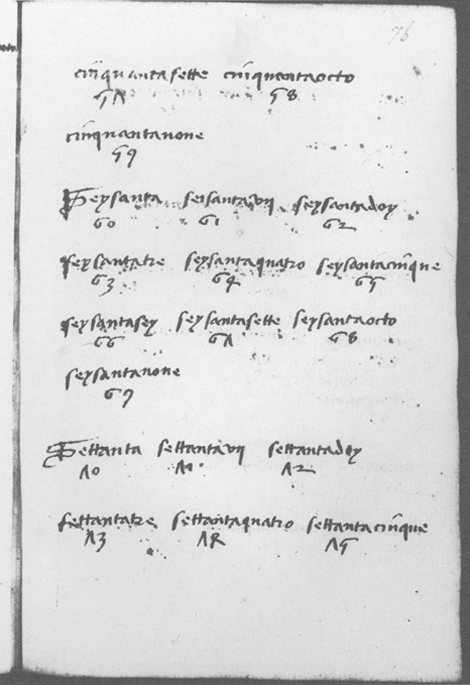 76
cinquantasette cinquantaocto
57 58
cinquantanone
59
Seysanta seisantavn seysantadoy
60 61 62
seysantatre seysantaquatro seysantacinque
63 64 65
seysantasey seysantasette seysantaocto
66 67 68
seysantanone
69
Settanta settantavn settantadoy
70 71 72
settantatre settantaquatro settantacinque
73 74 75